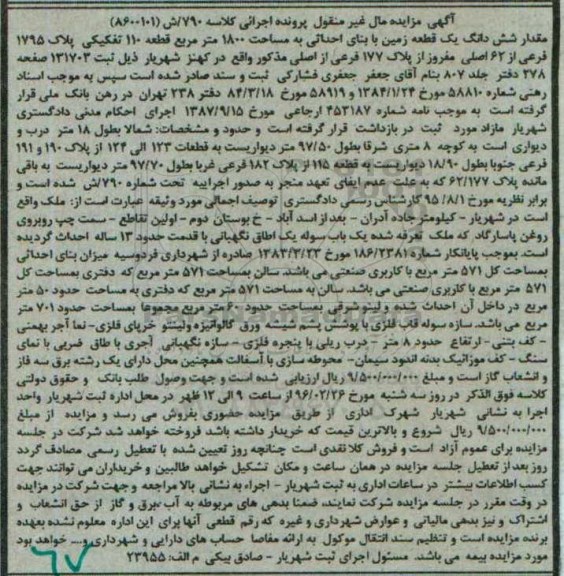 آگهی مزایده مال غیر منقول پرونده اجرائی کلاسه ۷۹۰/ش (۸۶۰۰۱۰۱)
مقدار شش دانگ یک قطعه زمین با بنای احداثی به مساحت ۱۸۰۰ متر مربع قطعه ۱۱۰ تفکیکی پلاک ۱۷۹۵
فرعی از ۶۲ اصلی مفروز از پلاک ۱۷۷ فرعی از اصلی مذکور واقع در کهنز شهریار ذیل ثبت ۱۳۱۷۰۳ صفحه
۲۷۸ دفتر جلد ۸۰۷ بنام آقای جعفر جعفری فشارکی ثبت و سند صادر شده است سپس به موجب اسناد
رهنی شماره ۵۸۸۱۰ مورخ ۱۳۸۴/۱/۲۴ و ۵۸۹۱۹ مورخ ۸۴/۳/۱۸ دفتر ۲۳۸ تهران در رهن بانک ملی قرار
گرفته است به موجب نامه شماره ۴۵۳۱۸۷ ارجاعی مورخ ۱۳۸۷/۹/۱۵ اجرای احکام مدنی دادگستری
شهریار مازاد مورد ثبت در بازداشت قرار گرفته است و حدود و مشخصات: شمالا بطول ۱۸ متر درب و
دیواری است به کوچه ۸ متری شرقا بطول ۹۷/۵۰ متر دیواریست به قطعات ۱۲۳ الی ۱۲۴ از پلاک ۱۹۰ و ۱۹۱
فرعی جنوبا بطول ۱۸/۹۰ دیواریست به قطعه ۱۱۵ از پلاک ۱۸۲ فرعی غربا بطول ۹۷/۷۰ متر دیواریست به باقی
مانده پلاک ۶۲/۱۷۷ که به علت عدم ایفای تعهد منجر به صدور اجراییه تحت شماره ۷۹۰/ش شده است و
برابر نظریه مورخ ۹۵/۸/۱ کارشناس رسمی دادگستری توصیف اجمالی مورد وثیقه عبارت است از: ملک واقع
است در شهریار - کیلومتر جاده آدران - بعد از اسد آباد - خ بوستان دوم - اولین تقاطع - سمت چپ روبروی
روغن پاسارگاد که ملک تعرفه شده یک باب سوله یک اطاق نگهبانی با قدمت حدود ۱۳ ساله احداث گردیده
است. بموجب پایانکار شماره ۱۸۶/۲۳۸۱ مورخ ۱۳۸۳/۳/۲۳ صادره از شهرداری فردوسیه میزان بنای احداثی
بمساحت کل ۵۷۱ متر مربع با کاربری صنعتی می باشد. سالن بمساحت ۵۷۱ متر مربع که دفتری بمساحت کل
۵۷۱ متر مربع با کاربری صنعتی می باشد. سالن به مساحت ۵۷۱ متر مربع که دفتری به مساحت حدود ۵۰ متر
مربع در داخل آن احداث شده و نیز شرقی بمساحت حدود متر مربع مجموعا بمساحت حدود ۷۰۱ متر
مربع می باشد. سازه سوله قاب فلزی با پوشش پشم شیشه ورق گالوانیزه ولیستو خرپای فلزی- نما آجر بهمنی
- کف بتنی - ارتفاع حدود ۸ متر - درب ریلی با پنجره فلزی - سازه نگهبانی آجری با طاق ضربی با نمای
سنگ - کف موزائیک بدنه اندود سیمان- محوطه سازی با آسفالت همچنین محل دارای یک رشته برق سه فاز
و انشعاب گاز است و مبلغ ۹/۵۰۰/۰۰۰/۰۰۰ ریال ارزیابی شده است و جهت وصول طلب بانک و حقوق دولتی
کلاسه فوق الذکر در روز سه شنبه مورخ ۹۶/۰۲/۲۶ از ساعت ۹ الی ۱۲ ظهر در محل اداره ثبت شهریار واحد
اجرا به نشانی شهریار شهرک اداری از طریق مزایده حضوری بفروش می رسد و مزایده از مبلغ
۹/۵۰۰/۰۰۰/۰۰۰ ریال شروع و بالاترین قیمت که خریدار داشته باشد فروخته خواهد شد شرکت در جلسه
مزایده برای عموم آزاد است و فروش کلا نقدی است چنانچه روز تعیین شده با تعطیل رسمی مصادف گردد
روز بعد از تعطیل جلسه مزایده در همان ساعت و مکان تشکیل خواهد طالبین و خریداران می توانند جهت
کسب اطلاعات بیشتر در ساعات اداری به ثبت شهریار - اجراء به نشانی بالا مراجعه و جهت شرکت در مزایده
در وقت مقرر در جلسه مزایده شرکت نمایند، ضمنا بدهی های مربوطه به آب -برق و گاز از حق انشعاب و
اشتراک و نیز بدهی مالیاتی و عوارض شهرداری و غیره که رقم قطعی آنها برای این اداره معلوم نشده بعهده
برنده مزایده است و تنظیم سند انتقال موکول به ارائه مفاصا حساب های دارایی و شهرداری و... خواهد بود
مورد مزایده بیمه می باشد. مسئول اجرای ثبت شهریار - صادق بیکی م الف: ۲۳۹۵۵
۶۷